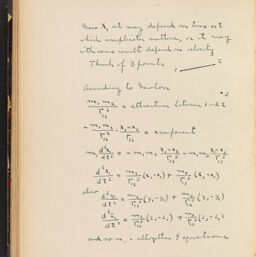 Now X, etc may depend on time etc
which complicates matters, or it may
with same result depend on velocity
Think of 3 points
2
3
According to Newton
m₁m₂/r²₁₂ = attraction between 1 and 2
- m₁m₂/r²₁₂ · x₁-x₂/r₁₂ = x component
m₁ d²x₁/dt² = - m₁m₂ x₁-x₂/r³₁₂ - m₁m₃ x₁-x₃/r³₁₃
d²x₁/dt² = m₂/r³₁₂ (x₂-x₁) + m₃/r³₁₃ (x₃-x₁)
also
d²y₁/dt² = m₂/r³₁₂ (y₂-y₁) + m₃/r³₁₃ (y₃-y₁)
d²z₁/dt² = m₂/r³₁₂ (z₂-z₁) + m₃/r³₁₃ (z₃-z₁)
and so on, - altogether 9 equations